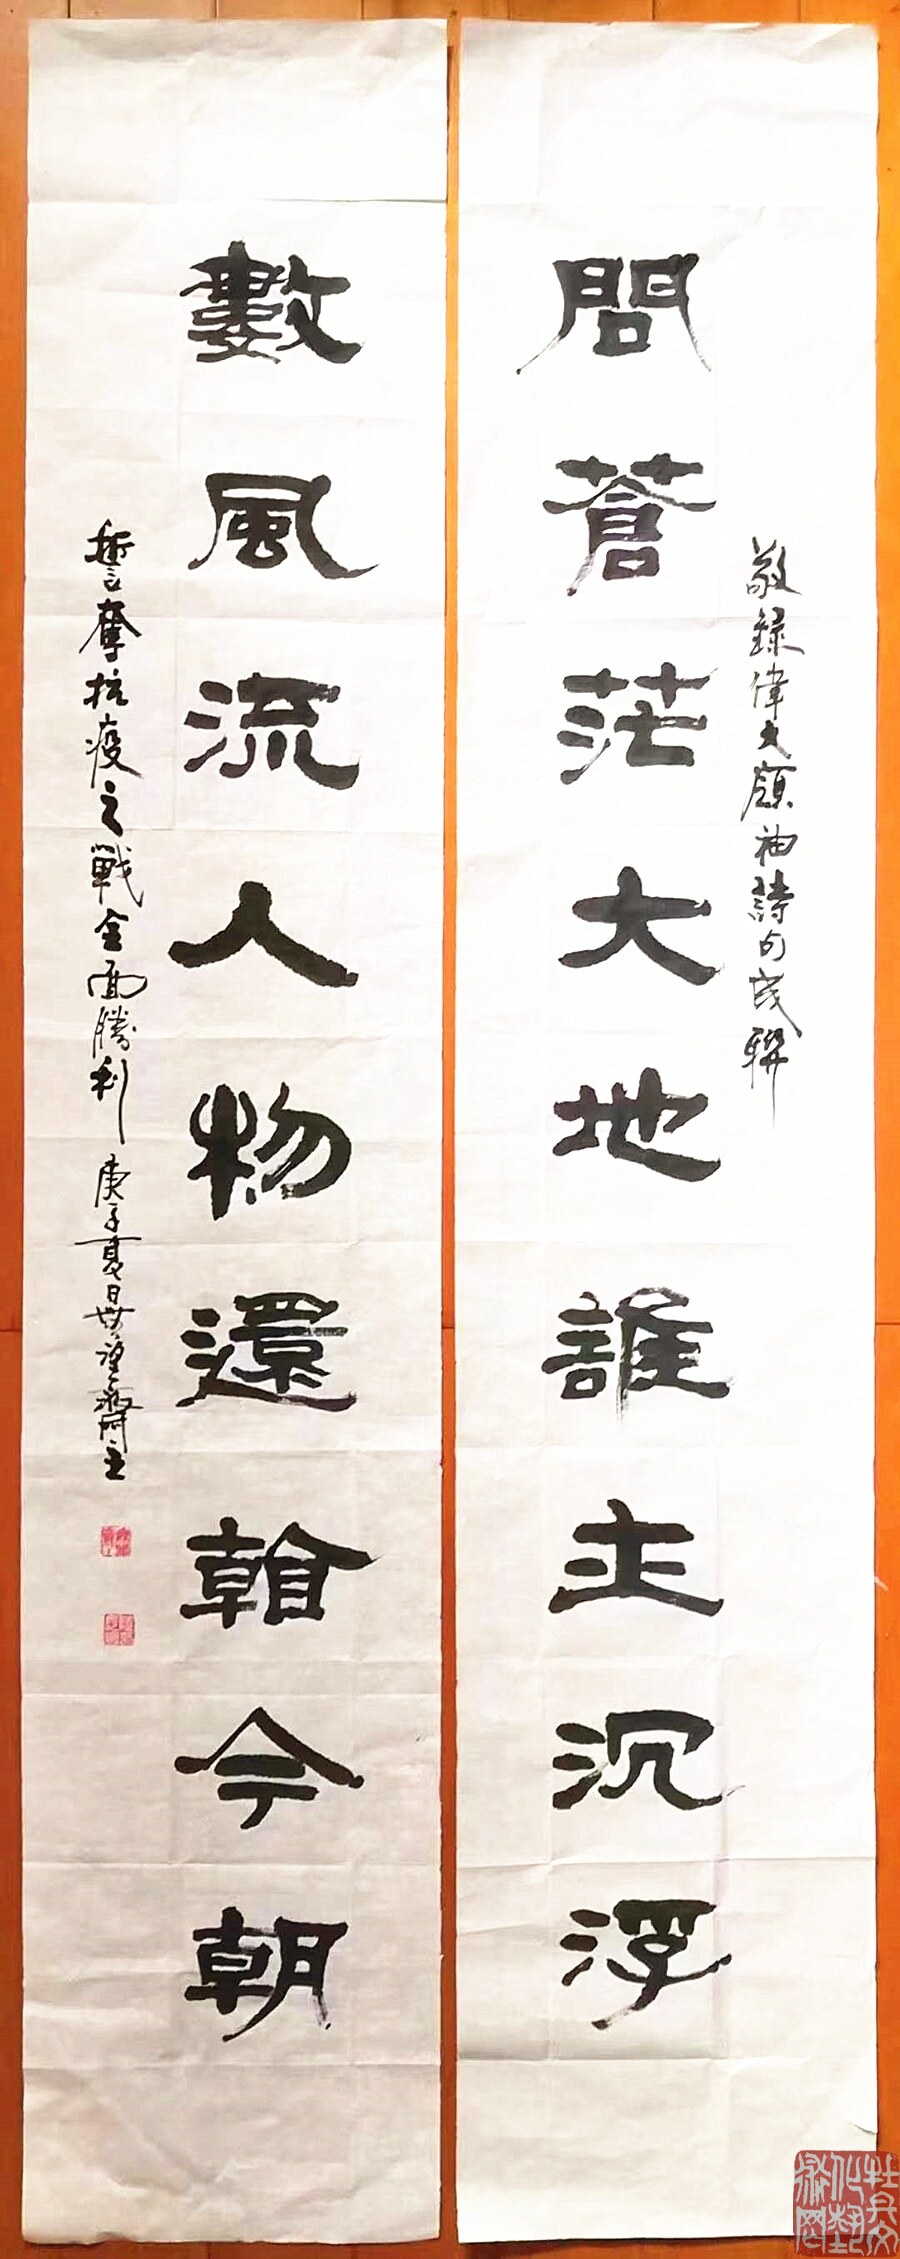 敬錄偉大領袖詩句成聯
問蒼茫大地誰主沉浮
數風流人物還看今朝
誓奪抗疫之戰全面勝利 庚子夏日 齋主
文化藝術网